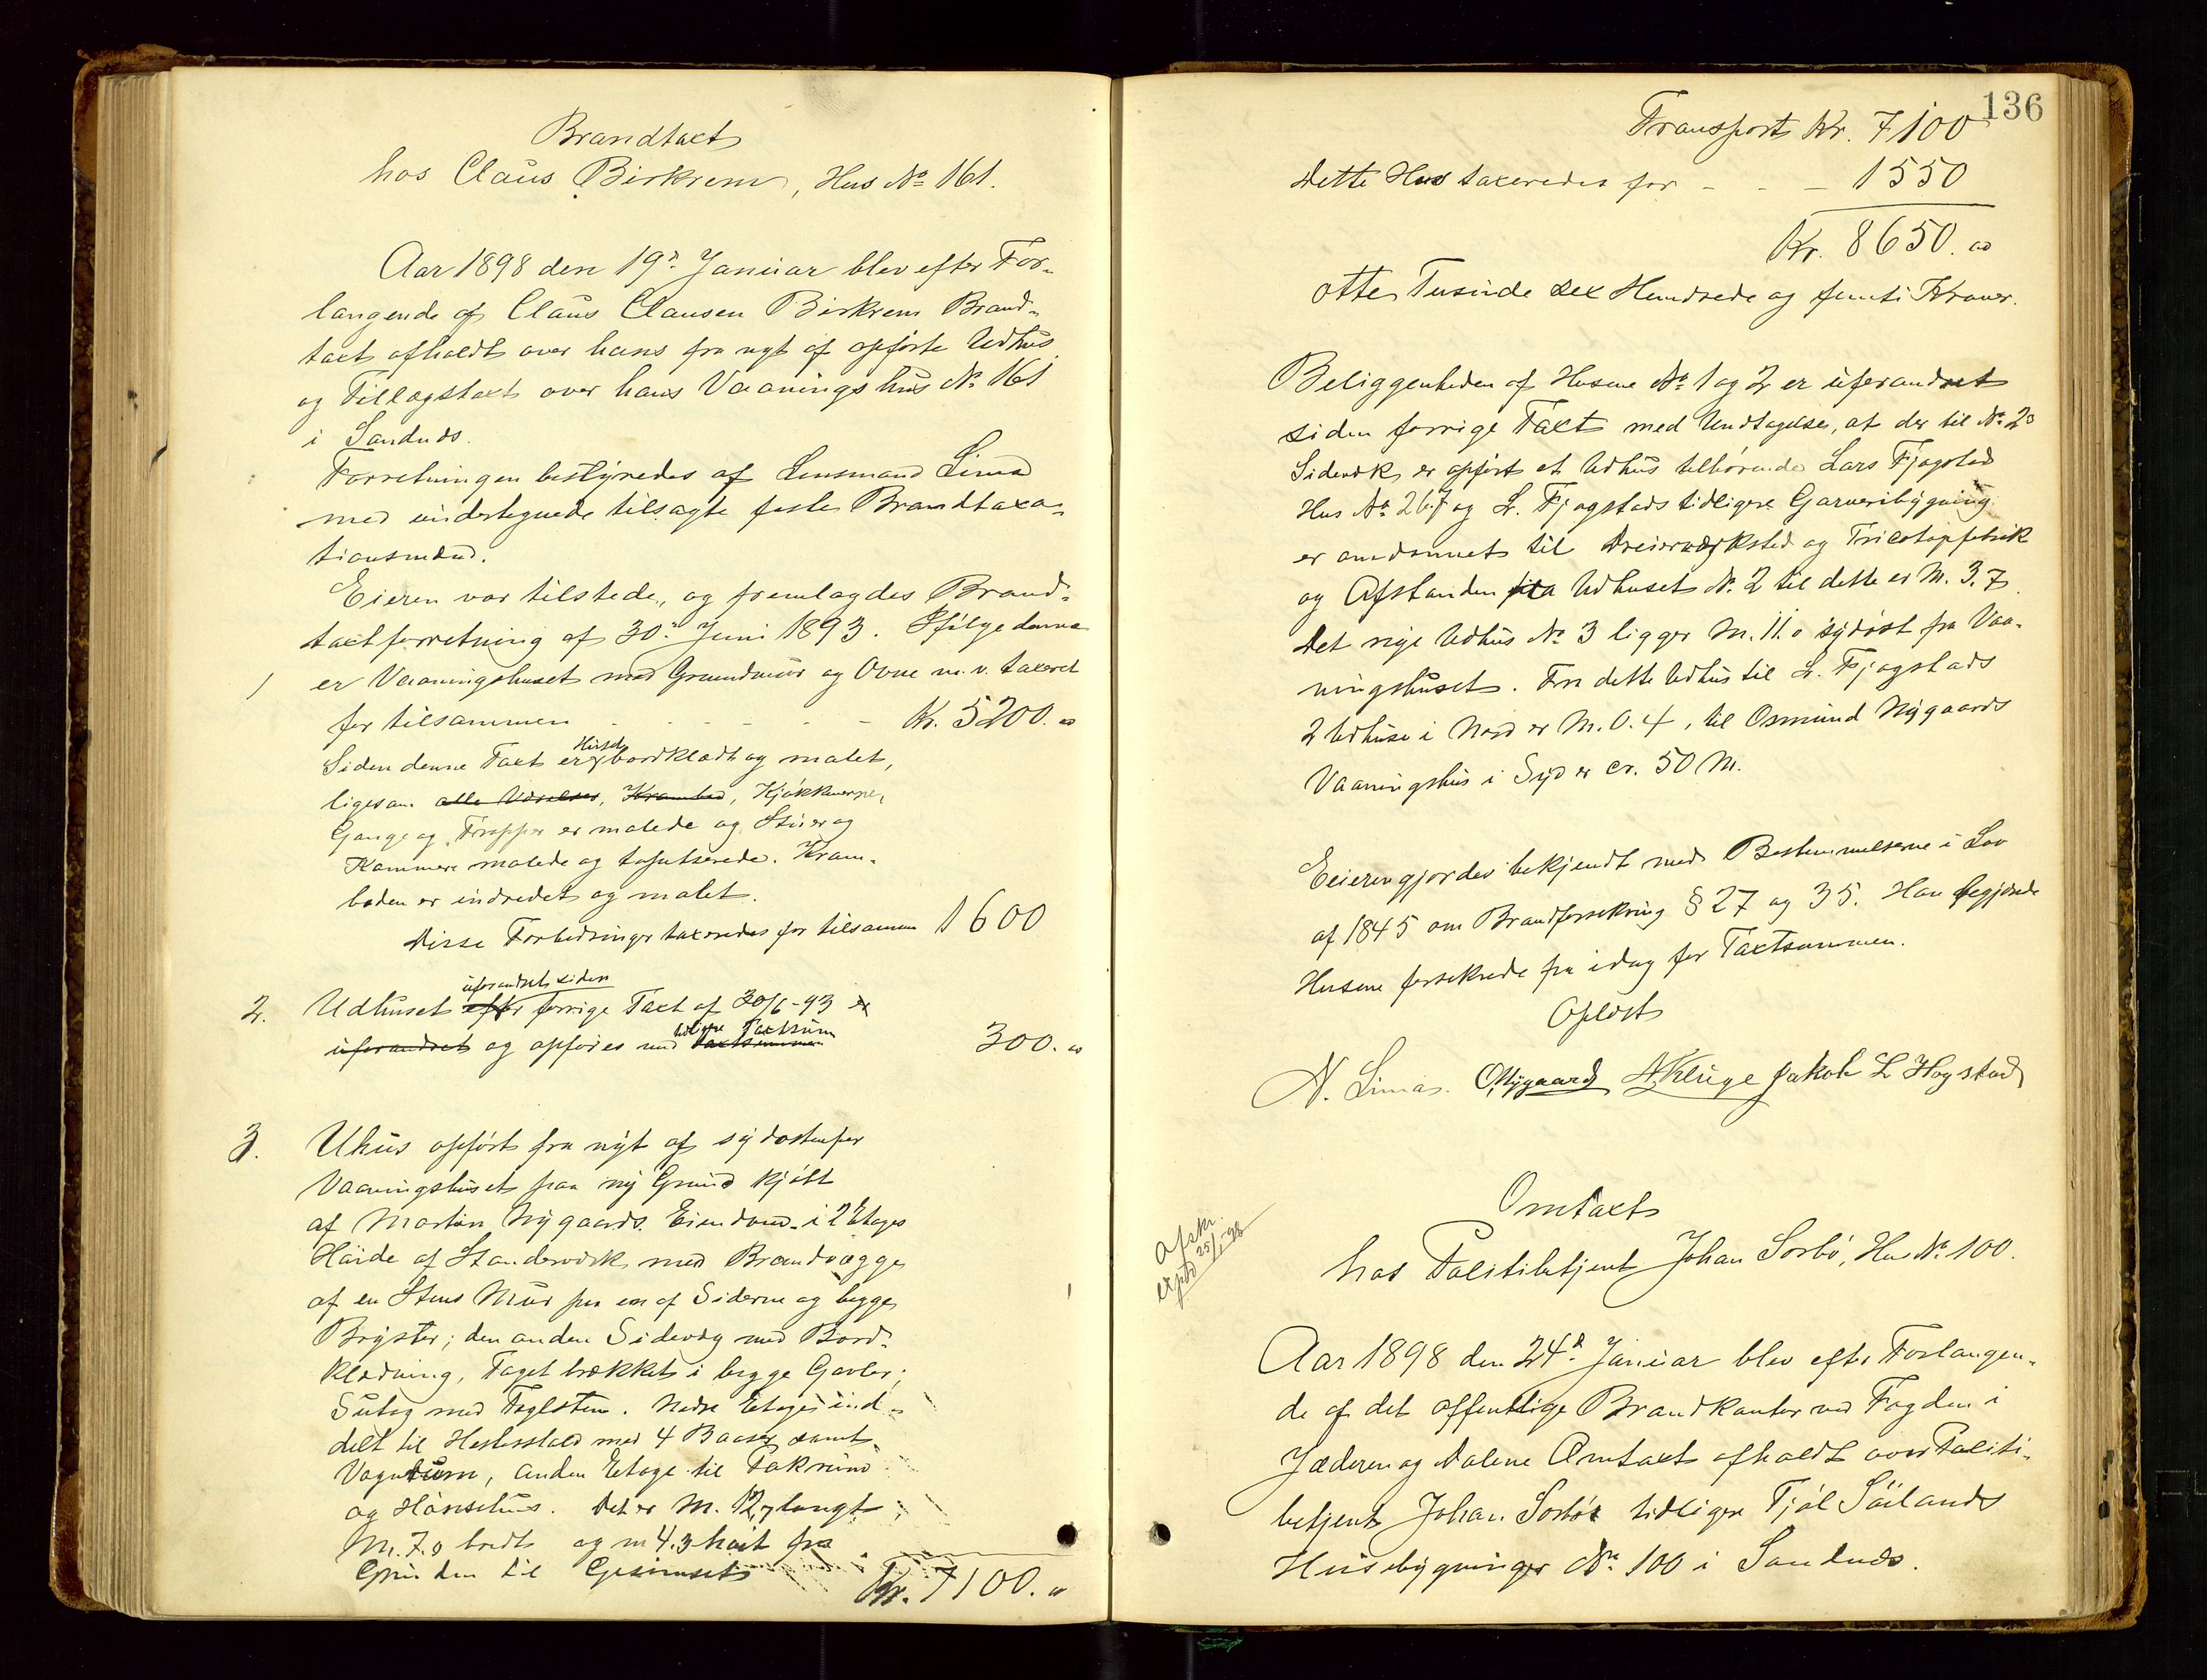 Brandtaxt
hos Claus Birkrem, Hus № 161.
Aar 1898 den 19d. Januar blev efter For-
langende af Claus Clausen Birkrem Brand-
taxt afholdt over hans fra nyt af opførte Udhus
og Tillægstaxt over hans Vaaningshus № 161
i Sandnæs.
Forretningen bestyredes af Lensmand Lima
med undertegnede tilsagte faste Brandtaxa-
tionsmænd.
Eieren var tilstede, og fremlagdes Brand-
taxtforretning af 30. Juni 1893. Ifølge denne
1 er Vaaningshuset med Grundmur og Ovne m.v. taxeret
for tilsammen - - - - - - Kr. 5200.00
Siden denne Taxt er Huset bordklædt og malet,
ligesom alle Værelser, Krambod, Kjøkkenerne,
Gange og Trapper er malede og Stuer og
Kammere malede og tapetserede. Kram-
boden er indredet og malet.
Disse Forbedringer taxeredes for tilsammen 1600
uforandret siden
2. Udhuset efter forrige Taxt af 30/6-93 er
uforandret og opføres med tidligere Taxtsum Taxtsummen 300.00
3. Uhus opført fra nyt af sydøstenfor
Vaaningshuset paa ny Grund kjøbt
af Martin Nygaards Eiendom i 2 Etages
Høide af Standerværk med Brandvægge
af en Stens Mur paa en af Siderne og begge
Bryster; den anden Sidevæg med Bord-
klædning, Taget brækket i begge Gavler;
Sutag med Taglsten. Nedre Etage ind-
delt til Hestestald med 4 Baaser samt
Vognrum, anden Etage til Fakrum
og Hønsehus. Det er M. 12,7 langt,
M. 7.0 bredt og m 4.3 høit fra
Grunden til Gesimset
Kr. 7100.00
136
Transport Kr. 7100
Dette Hus taxeredes for - - - 1550
Kr. 8650.00
otte Tusinde sex Hundrede og femti Kroner.
Beliggenheden af Husene № 1 og 2 er uforandret
siden forrige Taxt med Undtagelse, at der til № 2s
Sidevæk er opført et Udhus tilhørende Lars Fjogstad
Hus № 267 og L. Fjogstads tidligere Garveribygning
er omdannet til Dreierværksted og Tricotagefabrik
og Afstanden fra Udhuset № 2 til dette er M. 3.7.
Det nye Udhus № 3 ligger M. 11.0 sydøst fra Vaa-
ningshuset. Fra dette Udhus til L. Fjogstads
2 Udhuse i Nord er M. 0.4, til Osmund Nygaards
Vaaningshus i Syd er cr. 50 M.
Eieren gjordes bekjendt med Bestemmelserne i Lov
af 1845 om Brandforsikring § 27 og 35. Han begjærede
Husene forsikrede fra idag for Taxtsummen.
Oplæst
N. Lima. O Nygaard A Kluge Jakob L Hogstad
Afskr.
expd 25/1-98
Omtaxt
hos Politibetjent Johan Sørbø, Hus № 100.
Aar 1898 den 24d. Januar blev efter Forlangen-
de af det offentlige Brandkontor ved Fogden i
Jæderen og Dalene Omtaxt afholdt over Politi-
betjent Johan Sørbøs tidligere Tjøl Sølands
Husebygninger № 100 i Sandnæs.